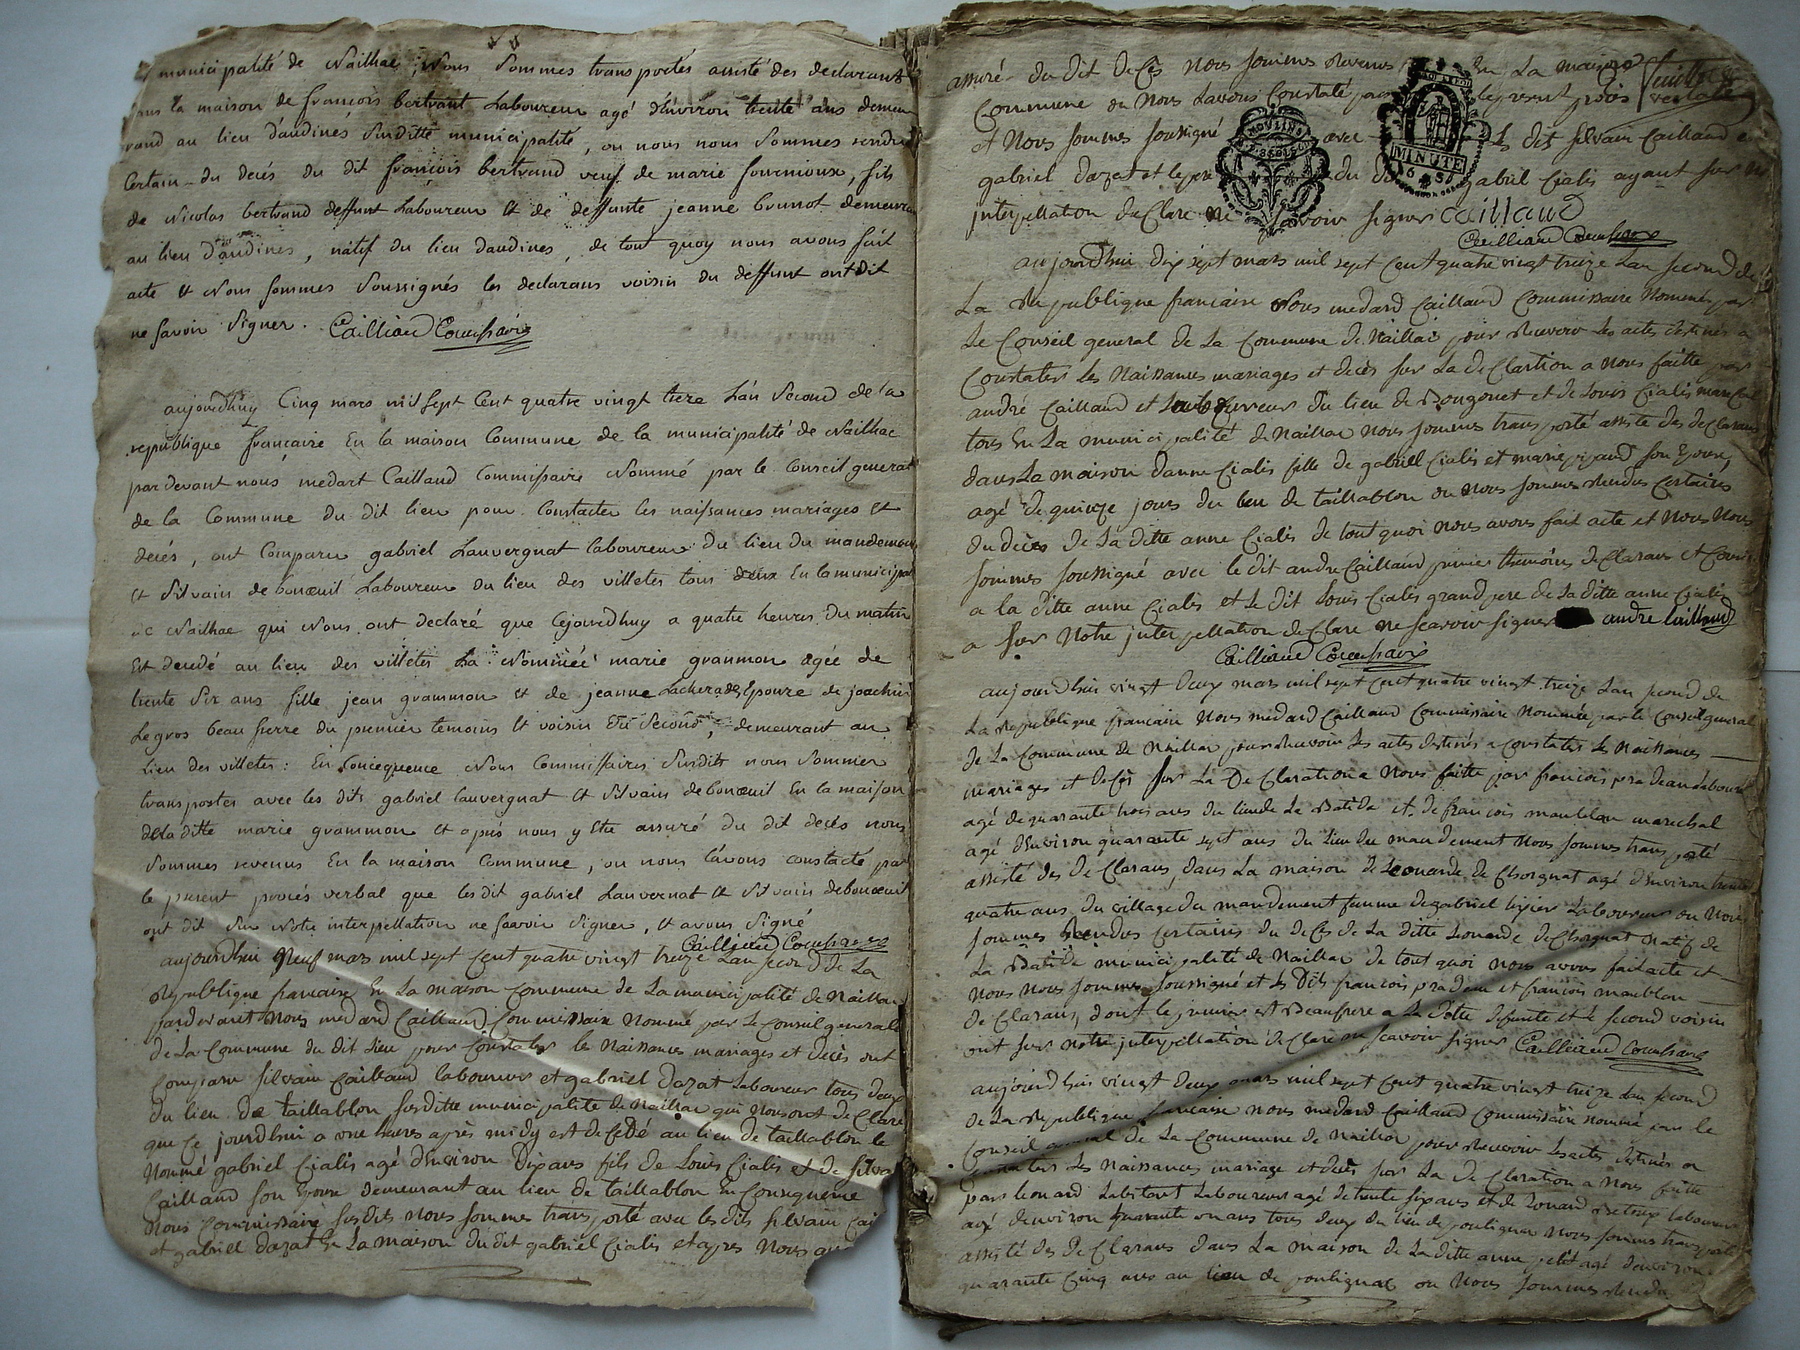 municipalité de Naillac, Nous Sommes transportés assisté des declarants
dans la maison de françois bertrant Laboureur agé d'environ trente ans demeu
rand au lieu d'audines Susditte municipalité, ou nous nous Sommes rendu
Certain du decés du dit françois bertrand veuf de marie fournioux, fils
de Nicolas bertrand deffunt Laboureur Et de deffunte jeanne brunot demeura
au lieu D'audines, natif du lieu daudines, de tout quoy nous avons fait
acte Et Nous sommes Soussignés les declarans voisin du deffunt ont dit
ne savoir Signer. Cailliaud Comissaire
aujourdhuy Cinq mars mil sept Cent quatre vingt treze L'an Second de la
republique francaire En la maison Commune de la municipalité de Naillac
par devant nous medart Caillaud Commissaire Nommé par le Conseil general
de la Commune du dit lieu pour Constater les naissances mariages Et
decés, ont Comparu gabriel Lauvergnat laboureur du lieu du mandement
Et Silvain de boneuil Laboureur du lieu des villetes tous deux En la municipal
de Naillac qui Nous ont declaré que Cejourdhuy a quatre heures du matin
Est decedé au lieu des villetes La Nommée marie grammon agée de
trente Six ans fille jean grammon et de jeanne Lacherades Epouze de joachin
Legros beau frere du premier temoins Et voisin du Second, demeurant au
Lieu des villetes: En Concequence Nous Commissaires Susdit nous Sommes
transportes avec les dits gabriel Lauvergnat Et Silvain deboneuil En la maison
dela ditte marie grammon Et apres nous y Etre assuré du dit decés nous
Sommes revenus En la maison Commune, ou nous l'avons constacté par
le present procés verbal que lesdit gabriel Lauvernat Et Silvain deboneuil
ont dit Sur Notre interpellation ne savoir Signer, Et avons Signé
Cailliaud Comissaire
aujourdhui Neuf mars mil sept Cent quatre vingt treize Lan second de La
Republique francaise En La maison Commune de La municipalité de Naillac
pardevant Nous medard Caillaud Commissaire Nommé par Le Conseil generale
de La Commune du dit Lieu pour Constater les Naissances mariages et decès ont
Comparu silvain Caillaud laboureur et gabriel Dazat Laboureur tous deux
du lieu de taillablon susditte municipalité de Naillac qui Nous ont de Clare
que ce jourdhui a onze heures après midy est decedé au lieu de taillablon le
Nommé gabriel Cialis agé d'Environ Dix ans fils de Louis Cialis et de silva
Caillaud son Epouse demeurant au lieu de taillablon En Consequence
Nous Commissaire susdits Nous sommes transporté avec les dits silvain Cai
et gabriel dazat En La maison du dit gabriel Cialis et apres Nous
assuré du dit decès Nous sommes revenus En La maison
Commune ou Nous Lavons Constaté par le present procès verbale
et Nous sommes soussigné avec Le dit silvain Caillaud e
gabriel dazat et du gabriel Cialis ayant sur
interpellation de Clare ne savoir signer caillaud
Cailliaud Comissaire
MOULINS
MINUTE
aujourdhui dix sept mars mil sept Cent quatre vingt treize Lan second de
La Republique francaise Nous medard Caillaud Commissaire Nommé par
Le Conseil general de La Commune de Naillac pour Recevoir Les actes destinés a
Constater Les Naissances mariages et decès sur La de Clartion a Nous faitte par
andré Caillaud et Laboureur du lieu de Bougouet et de Louis Cialis
tous En La municipalité de Naillac Nous sommes transporté assisté des de Clarans
dans La maison danne Cialis fille de gabriell Cialis et marie pijaud son Epouse,
agé de quinze jours du lieu de taillablon ou Nous sommes Rendus Certains
du decès de La ditte anne Cialis de tout quoi nous avons fait acte et Nous Nous
sommes soussigné avec le dit andre Caillaud prmier themoins de Clarans et
a la ditte anne Cialis et le dit Louis Cialis grand pere de La ditte anne Cialis
a sur Notre interpellation de Clare ne scavoir signer andre Caillaud
Cailliaud Comissaire
aujourdhui vingt deux mars mil sept Cent quatre vingt treize Lan second de
La Republique francaise Nous medard Caillaud Commissaire Nommé par le Conseil general
de La Commune de Naillac pour Recevoir Les actes destinés a Constater Les Naissances
mariages et decès sur La de Claration a Nous faitte par francois pradeau Laboureur
agé de quarante trois ans du lieu de La Batide et de francois maublan marechal
agé d'Environ quarante sept ans du lieu du mandement Nous sommes transporté
assisté des de Clarans, dans La maison de Leonarde de Chorgnat agé d'Environ trente
quatre ans du village du mandement femme de gabriel tixier Laboureur ou Nous
sommes Rendus Certains du decès de La ditte Leonarde de Chorgnat Natif de
La Batide municipalité de Naillac de tout quoi nous avons fait acte et
Nous Nous sommes soussigné et Les Dits francois pradeau et francois maublan
de Clarans, dont le prmier est Beaufrere a La ditte defunte et le second voisin
ont sur Notre interpellation de Clare ne scavoir signer Cailliaud Comissaire
aujourdhui vingt deux mars mil sept Cent quatre vingt treize Lan second
de La Republique francaise Nous medard Caillaud Commissaire nommé par le
Conseil general de La Commune de Naillac pour Recevoir Les actes destinés a
Constater Les Naissances mariage et decès sur La de Claration a Nous faitte
par Leonard Labitant Laboureur agé de trente six ans et de Leonard Laboureur
agé denviron quarante un ans tous deux du lieu de poulignac Nous sommes transporté
assisté des de Clarans dans La maison de La ditte anne petit agé denviron
quarante Cinq ans au lieu de poulignac ou Nous sommes Rendu